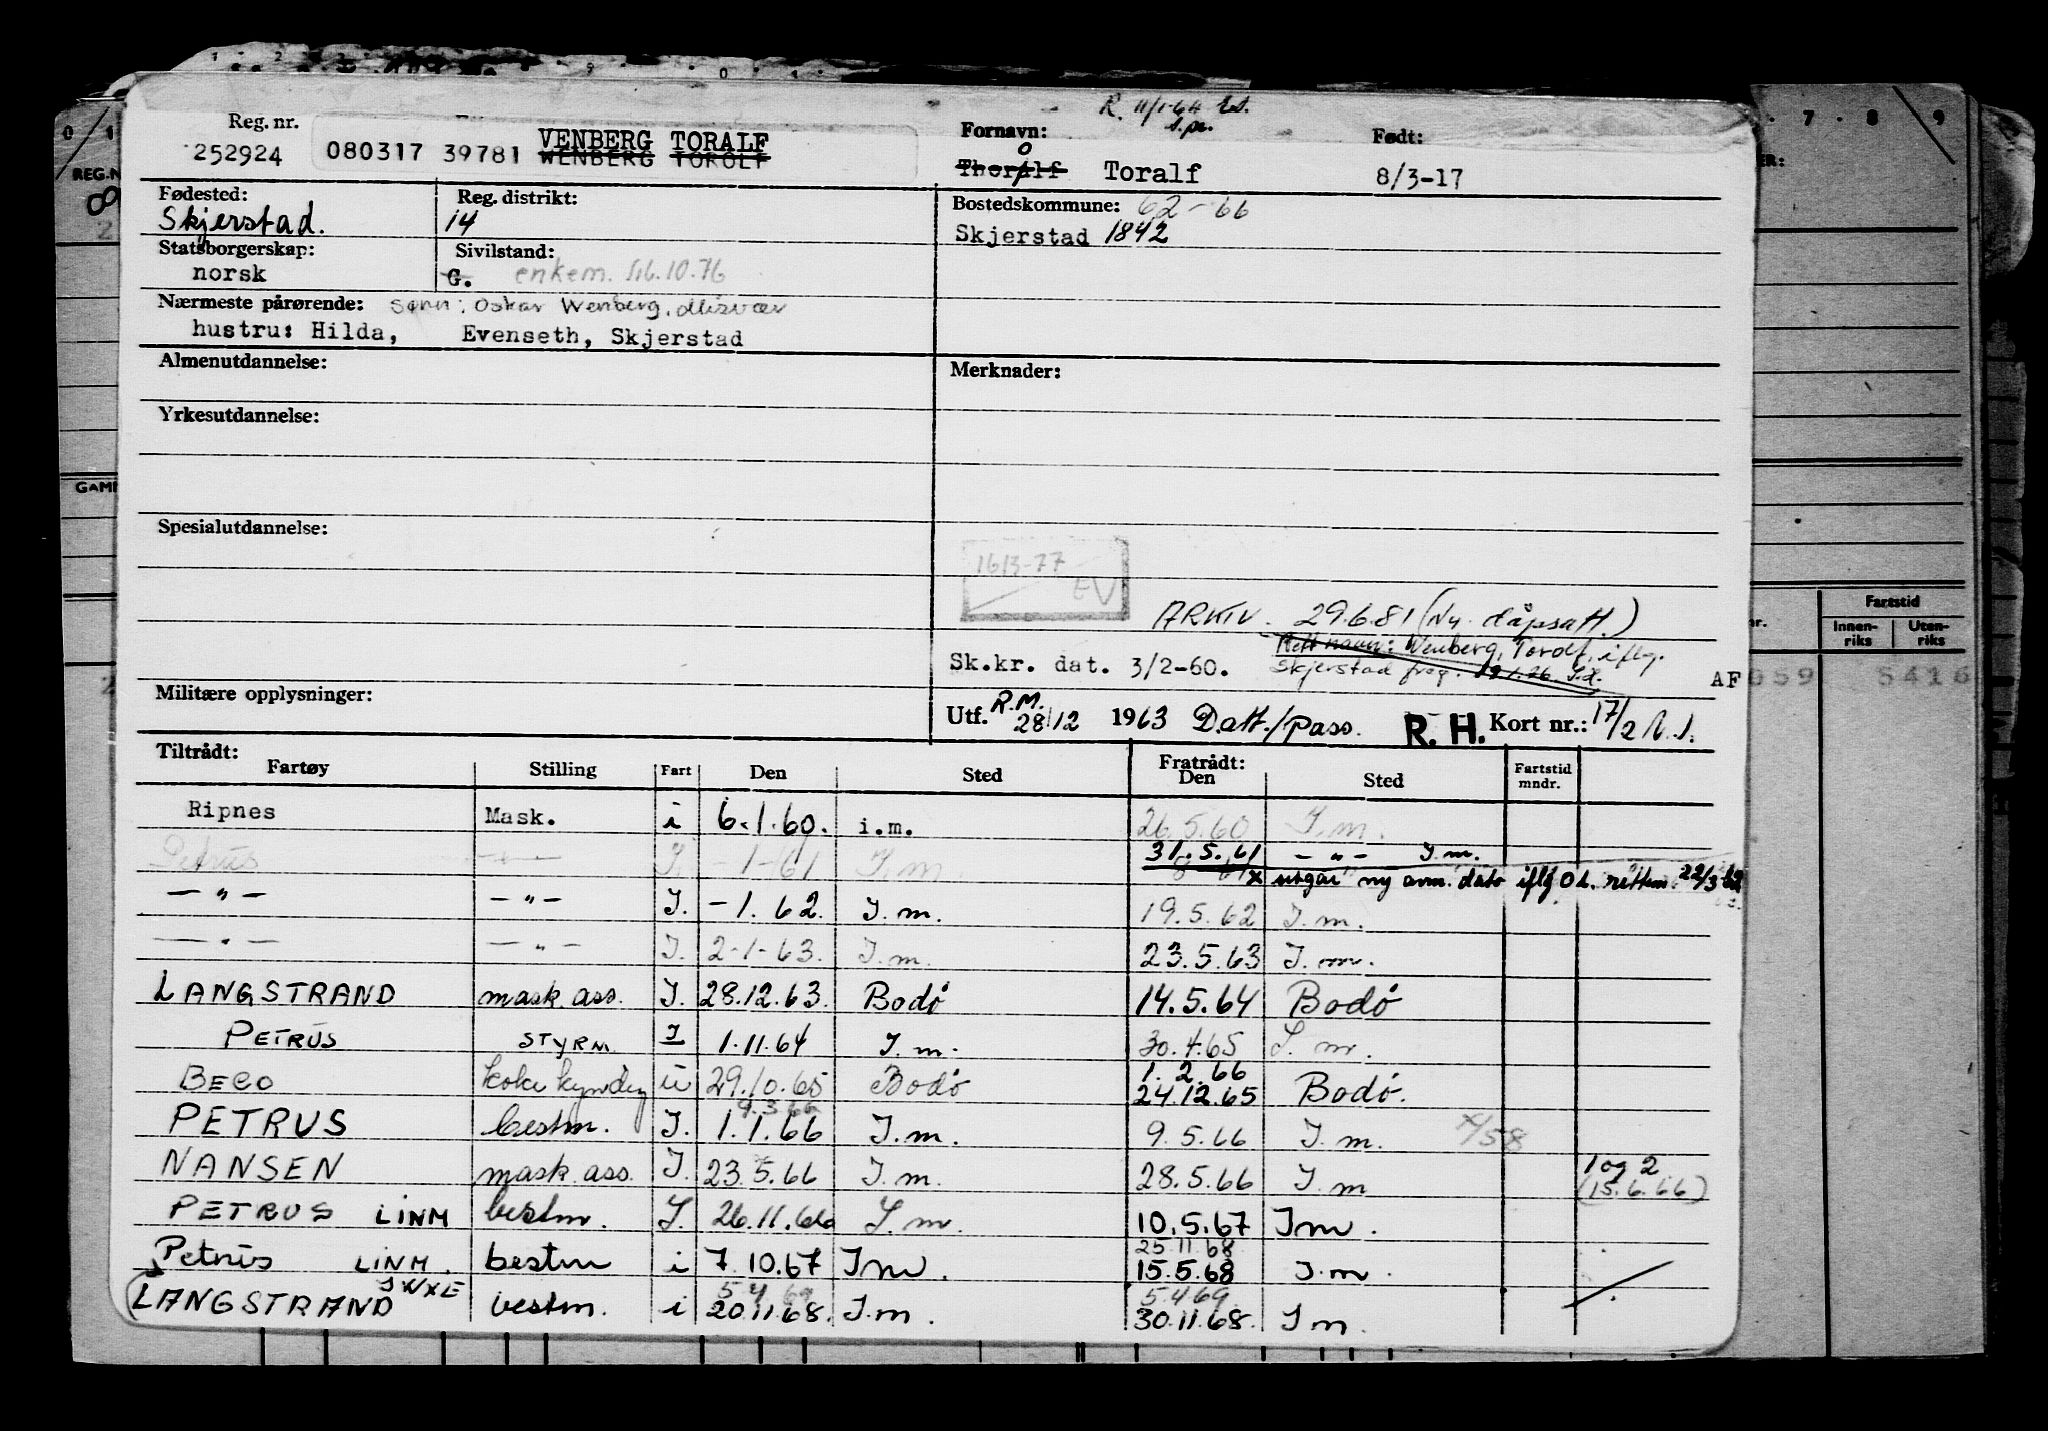 R. 11/1-64
Reg. nr. Fornavn: s.pr. Født:
252924 080317 39781 VENBERG TORALF
WENBERG TOROLF
Thoralf o Toralf 8/3-17
Fødested: Reg. distrikt: Bostedskommune: 62-66
Skjerstad. 14 Skjerstad 1842
Statsborgerskap: Sivilstand:
norsk G. enkem. 16.10.76
Nærmeste pårørende: sønn: Oskar Wenberg, Misvær
hustru: Hilda, Evenseth, Skjerstad
Almenutdannelse: Merknader:
Yrkesutdannelse:
Spesialutdannelse:
1613-77
EV
ARKIV. 29.6.81 (Ny dåpsatt.)
Rett navn: Wenberg, Torolf, iflg.
Sk.kr. dat. 3/2-60. Skjerstad
AF 059 5416
Militære opplysninger:
Utf. R.M. 28/12 1963 D.att./pass. R. H. Kort nr.: 17/2
Tiltrådt: Fratrådt:
Fartøy Stilling Fart Den Sted Den Sted Fartstid mndr.
Ripnes Mask. i 6.1.60. i.m. 26.5.60 I.m.
Petrus — I. -1-61 I.m. 31.5.61 —"— I.m.
x utgår ny avm. dato iflg O.L. 22/3
—"— —"— I. -1.62. I.m. 19.5.62 I.m.
—"— —"— I. 2-1-63. I.m. 23.5.63 I.m.
LANGSTRAND mask.ass. I. 28.12.63. Bodø 14.5.64 Bodø
PETRUS STYRM. I 1.11.64 I.m. 30.4.65 I.m.
1.2.66
BECO u 29.10.65 Bodø 24.12.65 Bodø.
9.3.66
PETRUS bestm. I. 1.1.66 I.m. 9.5.66 I.m. x/58
NANSEN mask.ass. I. 23.5.66 I.m. 28.5.66 I.m 1 og 2 (15.6.66)
PETRUS LINM bestm. I. 26.11.66 I.m. 10.5.67 Im.
25.11.68
Petrus LINM. bestm i 7.10.67 Im. 15.5.68 I.m.
JWXE 5.4.69 5.4.69.
LANGSTRAND bestm. i 20.11.68. I.m. 30.11.68. I m.
7 8 9
0 1
REG.N
GAM
Fartstid
Innen-riks Uten-riks